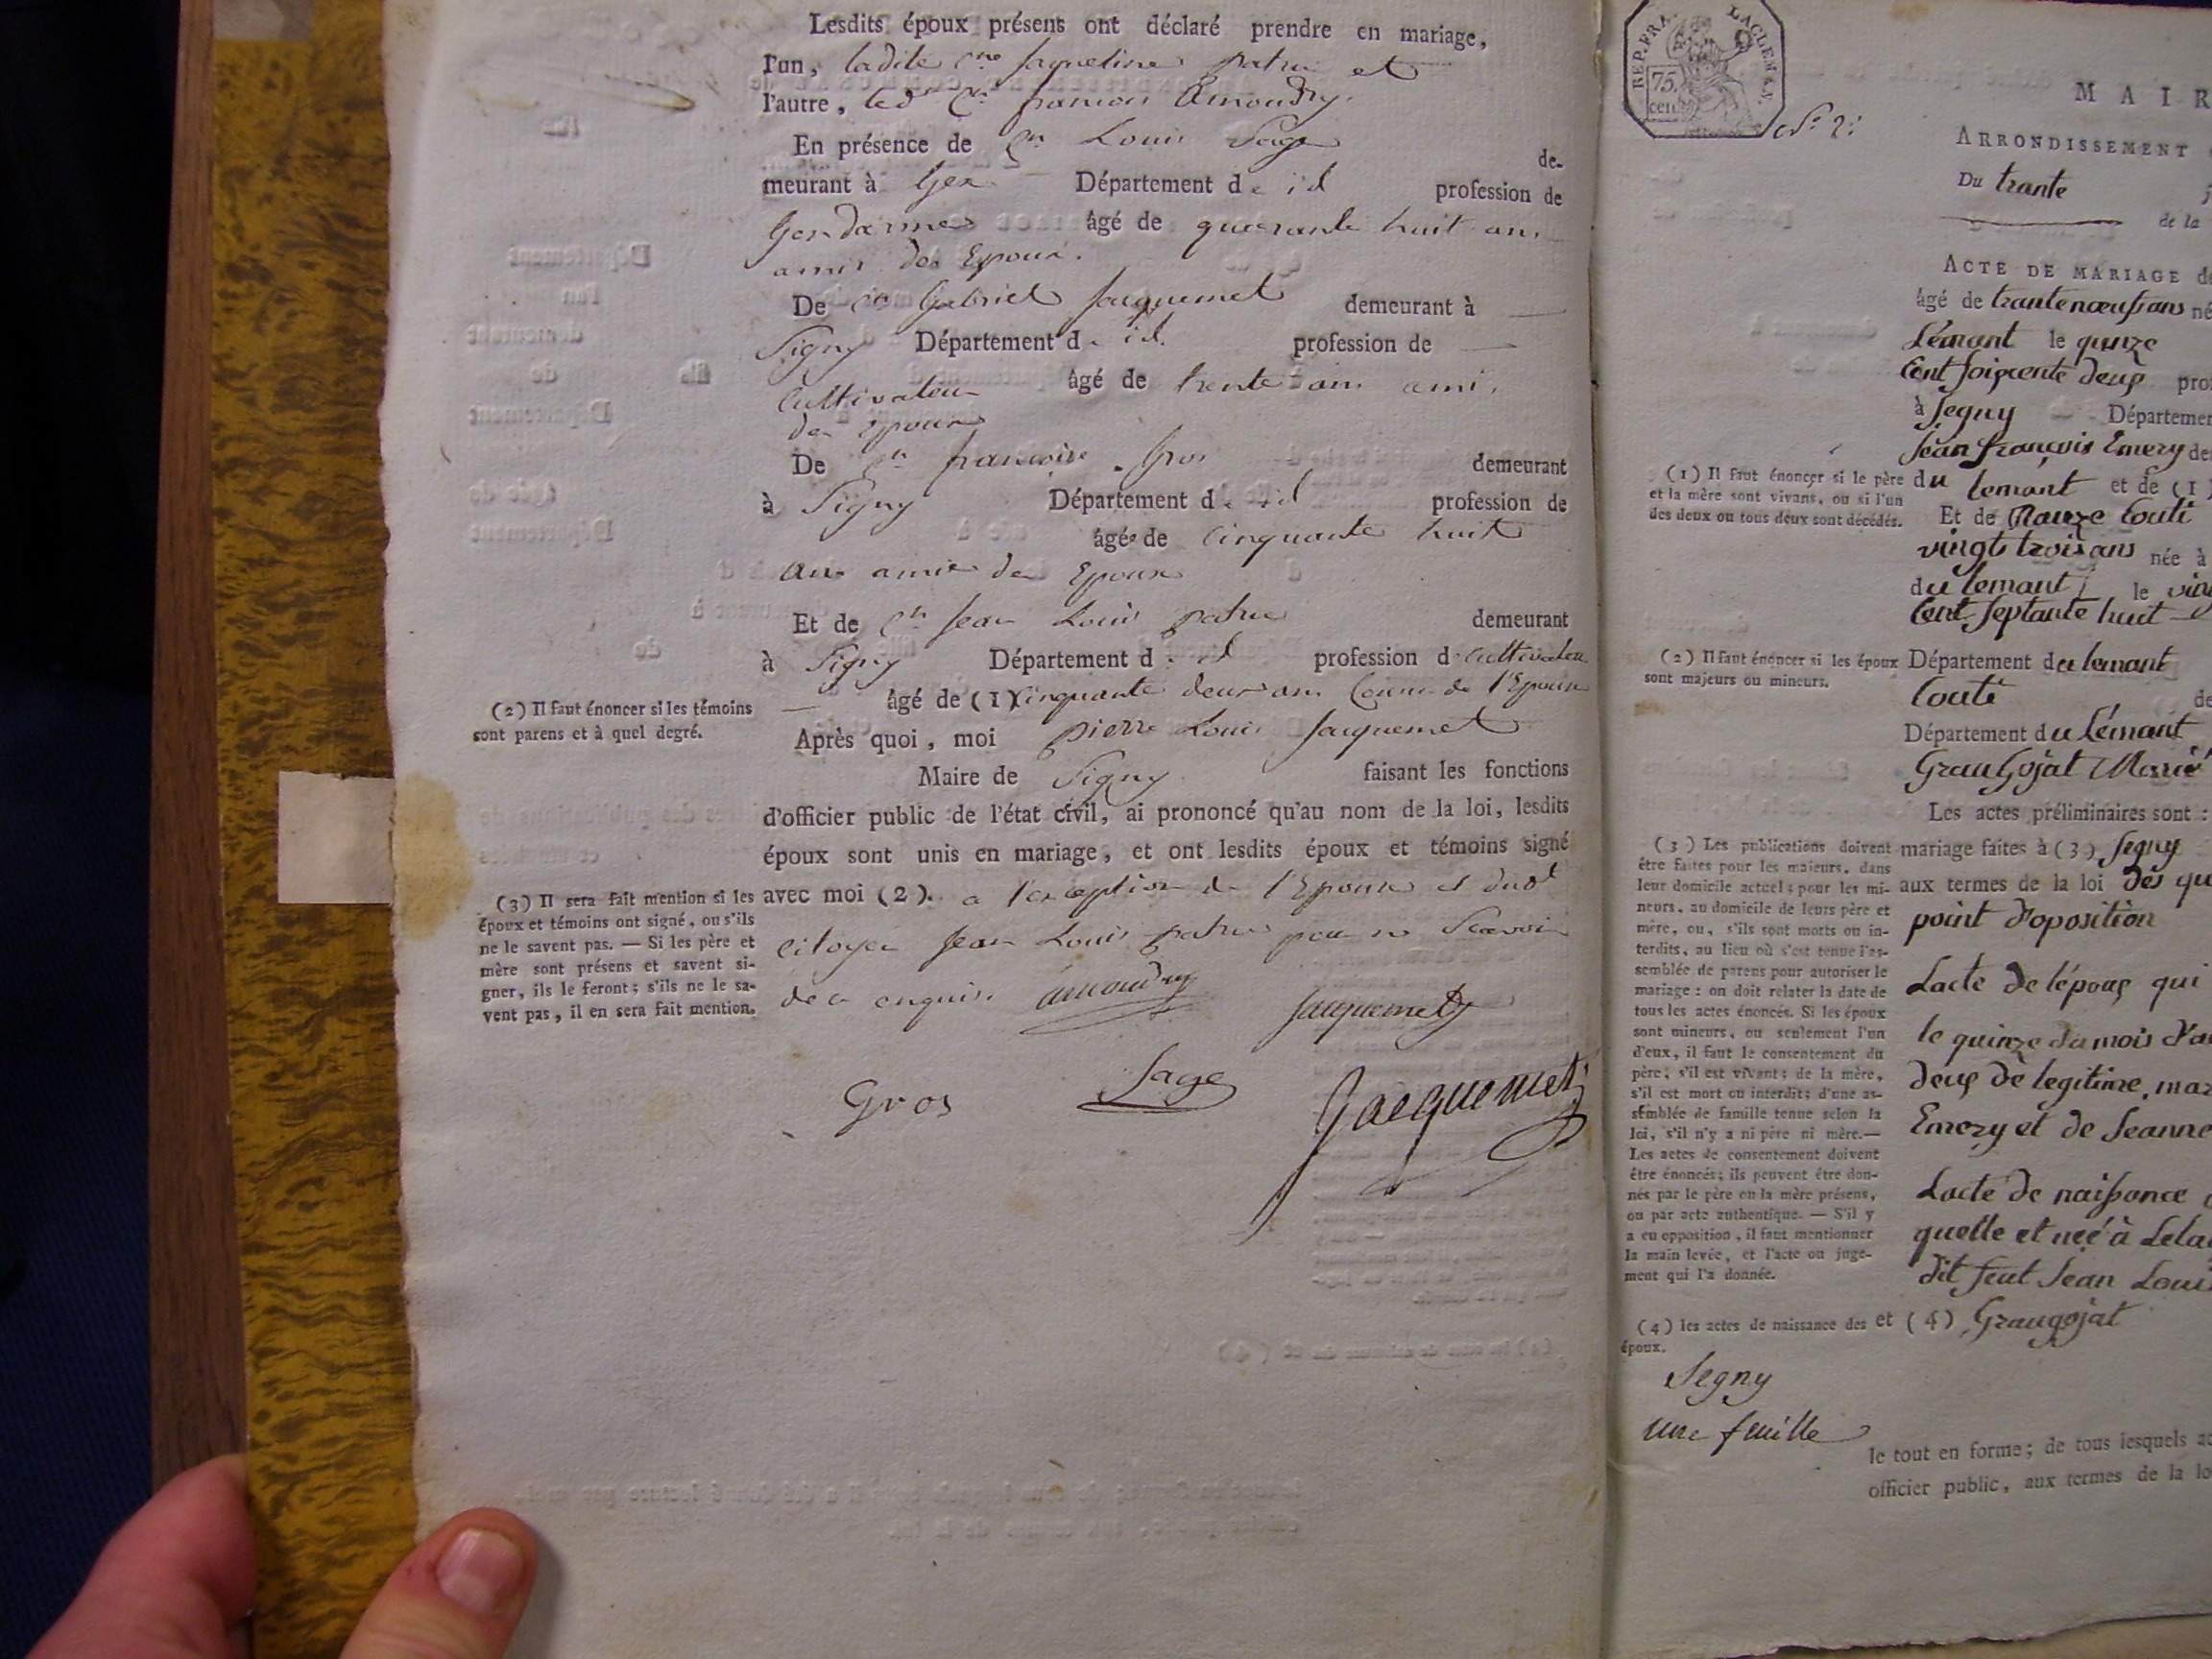 Lesdits époux présens ont déclaré prendre en mariage,
l'un, ladite cne Jaqueline patru et
l'autre, led. cn francois Emoudry.
En présence de cn Louis Sage de-
meurant à Gex Département de id profession de
Gendarme âgé de quarante huit ans
amis des Epoux.
De cn Gabriel Jacquemet demeurant à
Signy Département de id. profession de
Cultivateur âgé de trente ans ami
des Epoux
De cn francoise Gros demeurant
à Signy Département de id profession de
âgé de Cinquante huit
ans amie des Epoux
Et de cn Jean Louis patru demeurant
à Signy Département d id profession d cultivateur
âgé de (1) Cinquante deux ans de l'Epouse
Après quoi, moi pierre Louis Jacquemet
Maire de Signy faisant les fonctions
d'officier public de l'état civil, ai prononcé qu'au nom de la loi, lesdits
époux sont unis en mariage, et ont lesdits époux et témoins signé
avec moi (2). a l'exception de l'Epouse et dudt
citoyen Jean Louis patru pour ne Scavoir
de ce enquis.
Jacquemet
Gros Sage Jacquemet
(2) Il faut énoncer si les témoins
sont parens et à quel degré.
(3) Il sera fait mention si les
époux et témoins ont signé, ou s'ils
ne le savent pas. — Si les père et
mère sont présens et savent si-
gner, ils le feront; s'ils ne le sa-
vent pas, il en sera fait mention.
REP. FRA. 75. cent.
No 2.
MAIR
ARRONDISSEMENT
Du trante
de la
ACTE DE MARIAGE de
âgé de trante nœuf ans né
Lémant le quinze
Cent Soixcente deux pro
à Segny Départemen
Jean françois Emery de
du lemant et de (1)
Et de Couti
vingts trois ans née à
du lemant le vin
Cent Septante huit
Département du lemant
Couti de
Département du Lémant
Grangojat Marié
Les actes préliminaires sont :
mariage faites à (3) Segny
aux termes de la loi Dès qu
point d'oposition
Lacte de lépoux qui
le quinze du mois d'a
deux de legitime mar
Emery et de Jeanne
Lacte de naissance
quelle et neé à Lela
dit feut Jean Loui
et (4) Grangojat
le tout en forme; de tous lesquels ac
officier public, aux termes de la lo
(1) Il faut énoncer si le père
et la mère sont vivans, ou si l'un
des deux ou tous deux sont décédés.
(2) Il faut énoncer si les époux
sont majeurs ou mineurs.
(3) Les publications doivent
être faites pour les majeurs, dans
leur domicile actuel; pour les mi-
neurs, au domicile de leurs père et
mère, ou, s'ils sont morts ou in-
terdits, au lieu où s'est tenue l'as-
semblée de parens pour autoriser le
mariage : on doit relater la date de
tous les actes énoncés. Si les époux
sont mineurs, ou seulement l'un
d'eux, il faut le consentement du
père; s'il est vivant; de la mère,
s'il est mort ou interdit; d'une as-
semblée de famille tenue selon la
loi, s'il n'y a ni père ni mère.—
Les actes de consentement doivent
être énoncés; ils peuvent être don-
nés par le père ou la mère présens,
ou par acte authentique. — S'il y
a eu opposition, il faut mentionner
la main levée, et l'acte ou juge-
ment qui l'a donnée.
(4) les actes de naissance des
époux.
Segny
une feuille